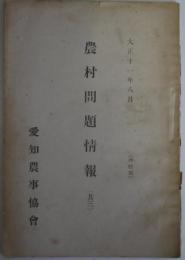 大正十一年八月
農村問題情報 (其三)
愛知農事協會